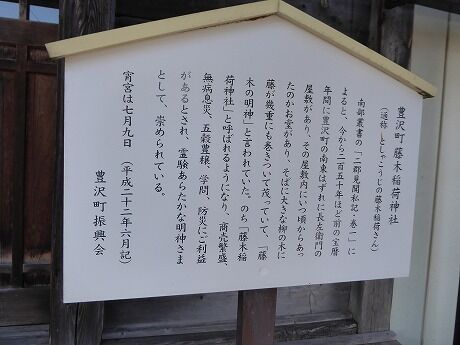 豊沢町 藤木稲荷神社
(通称 としゃこうじの藤木稲荷さん)
南部叢書の「二郡見聞私記・巻一」に
よると、今から二百五十年ほど前の宝暦
年間に豊沢町の南東はずれに長左衛門の
屋敷があり、その屋敷内にいつ頃からあっ
たのかお堂があり、そばに大きな柳の木に
藤が幾重にも巻きついて茂っていて、「藤
木の明神」と言われていた。のち「藤木稲
荷神社」と呼ばれるようになり、商売繁盛、
無病息災、五穀豊穣、学問、防災にご利益
があるとされ、霊験あらたかな明神さま
として、崇められている。
宵宮は七月九日 (平成二十二年六月記)
豊沢町振興会